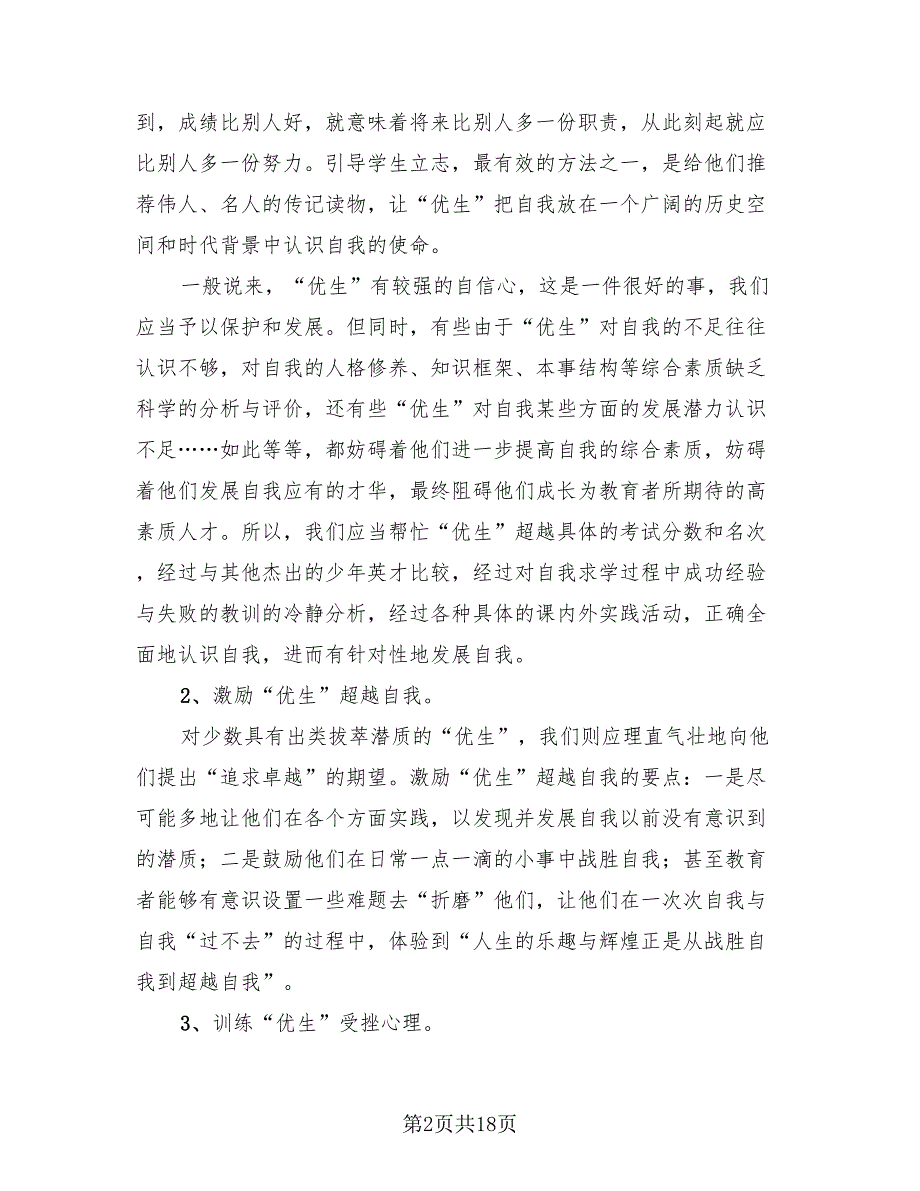 到，成绩比别人好，就意味着将来比别人多一份职责，从此刻起就应
比别人多一份努力。引导学生立志，最有效的方法之一，是给他们推
荐伟人、名人的传记读物，让“优生”把自我放在一个广阔的历史空
间和时代背景中认识自我的使命。
一般说来，“优生”有较强的自信心，这是一件很好的事，我们
应当予以保护和发展。但同时，有些由于“优生”对自我的不足往往
认识不够，对自我的人格修养、知识框架、本事结构等综合素质缺乏
科学的分析与评价，还有些“优生”对自我某些方面的发展潜力认识
不足……如此等等，都妨碍着他们进一步提高自我的综合素质，妨碍
着他们发展自我应有的才华，最终阻碍他们成长为教育者所期待的高
素质人才。所以，我们应当帮忙“优生”超越具体的考试分数和名次
，经过与其他杰出的少年英才比较，经过对自我求学过程中成功经验
与失败的教训的冷静分析，经过各种具体的课内外实践活动，正确全
面地认识自我，进而有针对性地发展自我。
2、激励“优生”超越自我。
对少数具有出类拔萃潜质的“优生”，我们则应理直气壮地向他
们提出“追求卓越”的期望。激励“优生”超越自我的要点：一是尽
可能多地让他们在各个方面实践，以发现并发展自我以前没有意识到
的潜质；二是鼓励他们在日常一点一滴的小事中战胜自我；甚至教育
者能够有意识设置一些难题去“折磨”他们，让他们在一次次自我与
自我“过不去”的过程中，体验到“人生的乐趣与辉煌正是从战胜自
我到超越自我”。
3、训练“优生”受挫心理。
第2页共18页